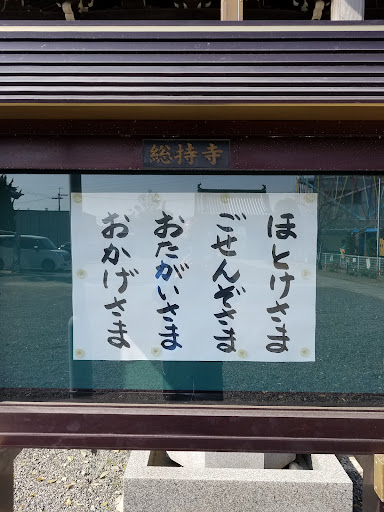 総持寺
ほとけさま
ごせんぞさま
おたがいさま
おかげさま